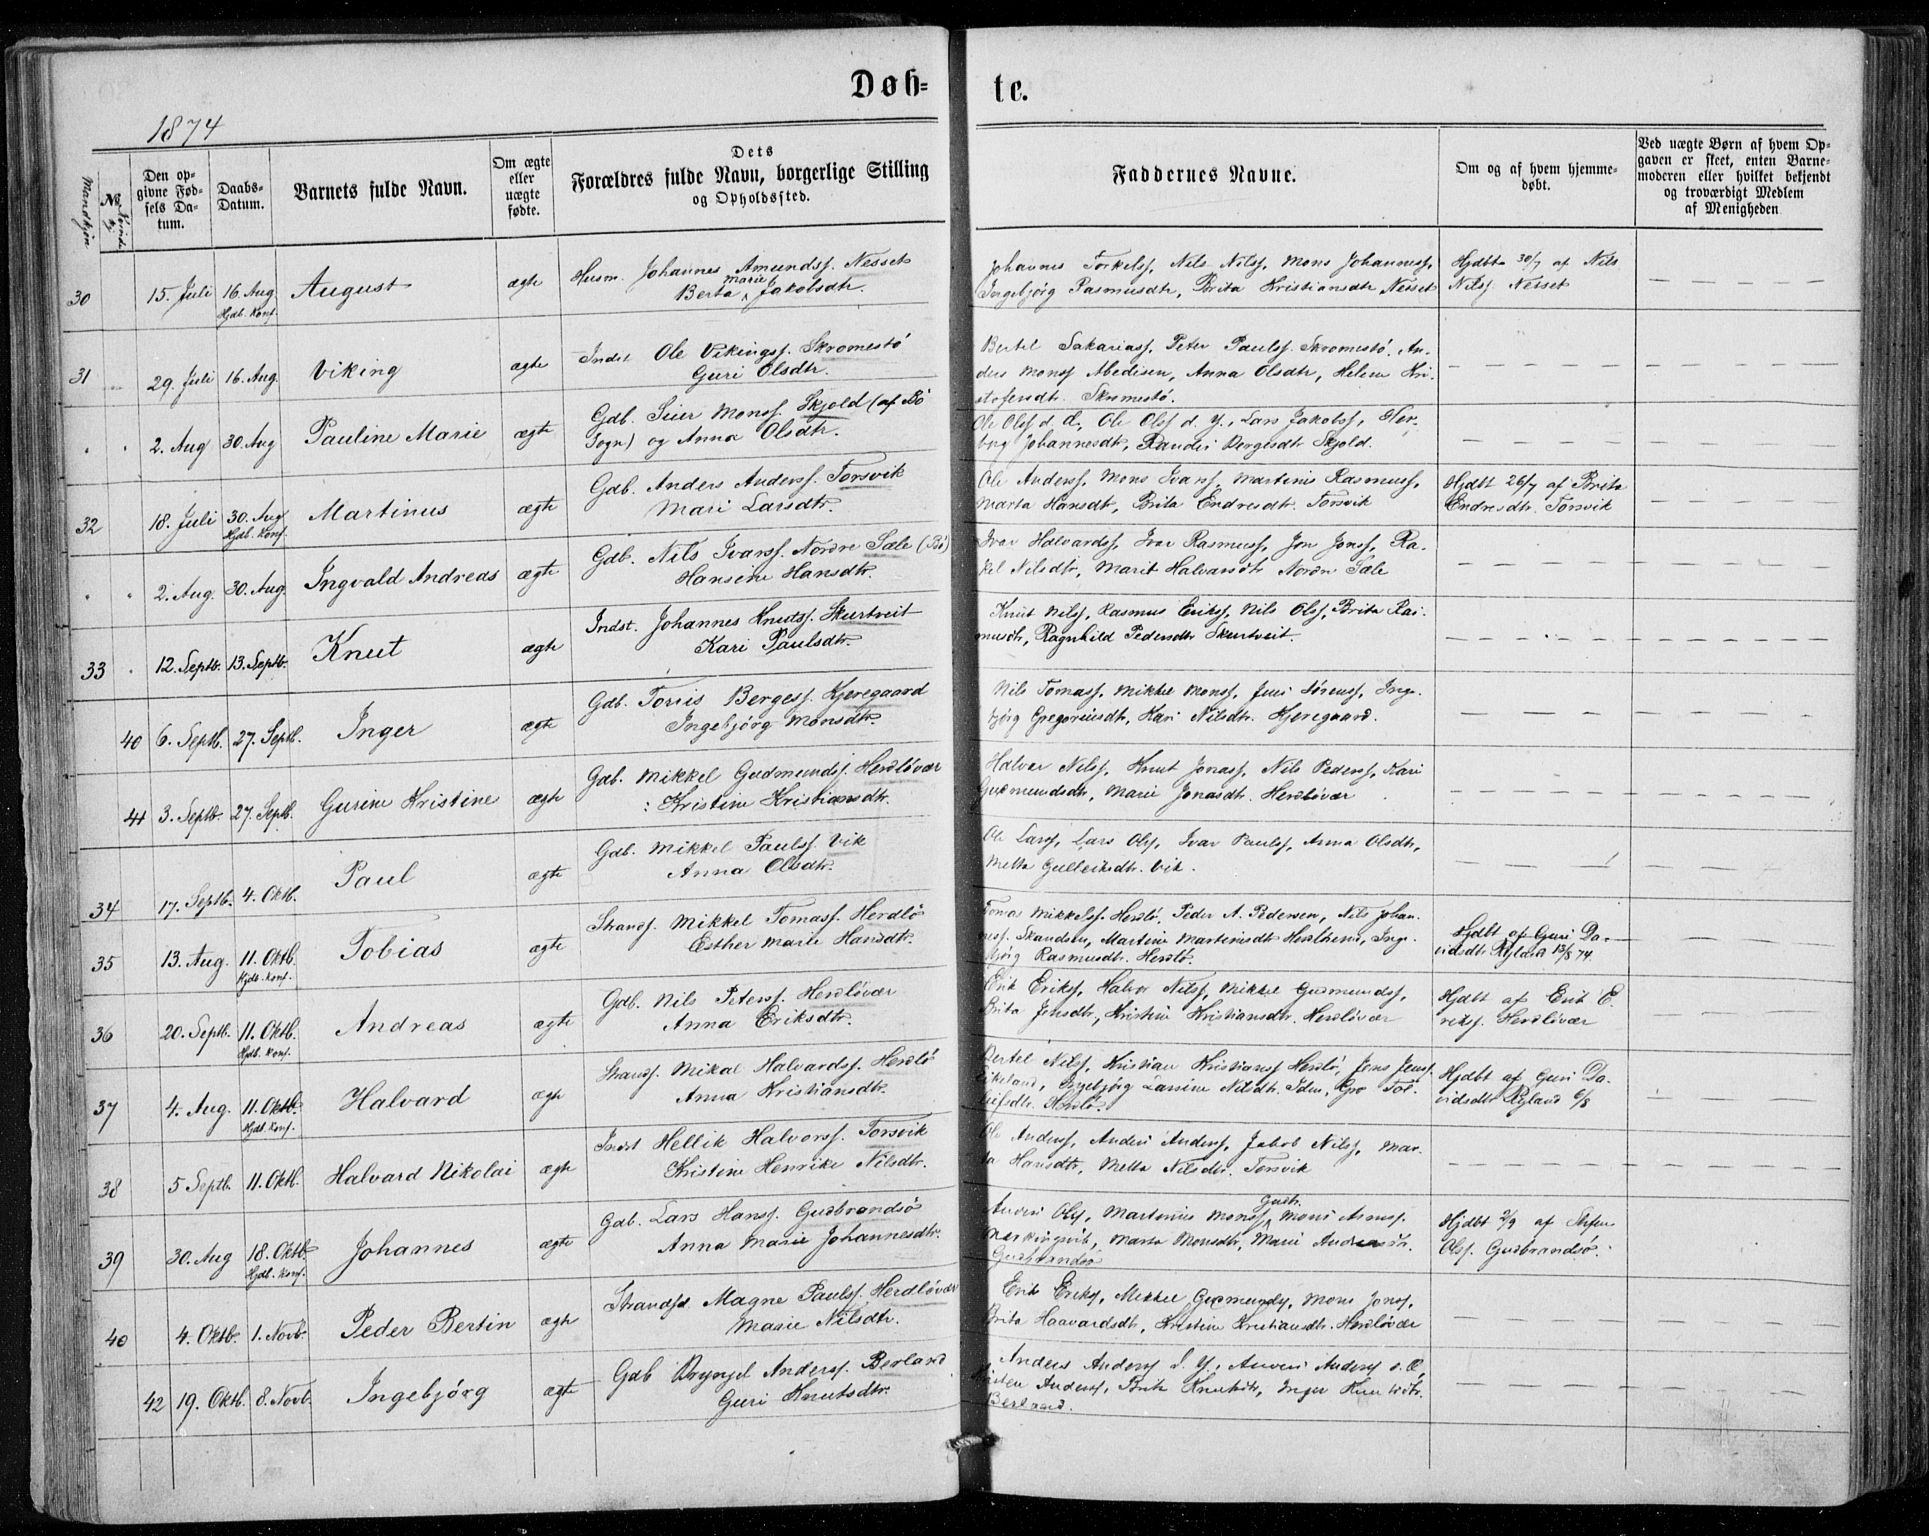 Døb- te.
1874
Mandkjøn
No
Kvindekj.
Den opgivne Fødsels Datum.
Daabs-Datum.
Barnets fulde Navn.
Om ægte eller uægte fødte.
Dets Forældres fulde Navn, borgerlige Stilling og Opholdssted.
Faddernes Navne.
Om og af hvem hjemmedøbt.
Ved uægte Børn af hvem Opgaven er skeet, enten Barnemoderen eller hvilket bekjendt og troværdigt Medlem af Menigheden
30 15. Juli 16. Aug. Hjdb. Konf. August ægte Husm. Johannes Amundsf. Nesset
Berta Marie Jakobsdtr.
Johannes Torkelsf, Nils Nilsf, Mons Johannesf,
Ingebjörg Rasmusdtr, Brita Kristiansdtr Nesset
Hjdbt 30/7 af Nils
Nilsf Nesset
31 29. Juli 16. Aug. Viking ægte Indst Ole Vikingsf. Skromestö
Guri Olsdtr.
Bertel Sakariasf, Peter Paulsf Skromestö, An-
ders Monsf Abedisen, Anna Olsdtr, Helene Kri-
stofersdtr. Skromestö.
2. Aug 30. Aug Pauline Marie ægte Gdb. Seier Monsf. Skjold (af Bö
Sogn) og Anna Olsdtr.
Ole Olsf d. Æ, Ole Olsf d. Y., Lars Jakobsf, Tor-
borg Johannesdtr, Randei Bergesdtr Skjold.
32 18. Juli 30. Aug Hjdb. Konf. Martinus ægte Gdb. Anders Andersf. Torsvik
Mari Larsdtr.
Ole Andersf, Mons Ivarsf, Martinus Rasmusf,
Marta Hansdtr, Brita Endresdtr. Torsvik
Hjdbt 26/7 af Brita
Endresdtr. Torsvik
2. Aug. 30. Aug. Ingvald Andreas ægte Gdb. Nils Ivarsf. Nordre Sæle (Bö)
Hansine Hansdtr.
Ivar Halvardsf, Ivar Rasmusf, Jon Jonsf, Ra-
kel Nilsdtr, Marit Halvarsdtr Nordre Sæle
33 12. Septb. 13. Septb. Knut ægte Indst. Johannes Knutsf. Skurtveit
Kari Paulsdtr.
Knut Nilsf, Rasmus Eriksf, Nils Olsf, Brita Ras-
musdtr, Ragnhild Pedersdtr Skurtveit.
40 6. Septb. 27. Septb. Inger ægte Gdb. Torris Bergesf. Kjeregaard
Ingebjörg Monsdtr.
Nils Tomasf, Mikkel Monsf, Jens Sörensf, Inge-
björg Gregoriusdtr, Kari Nilsdtr. Kjeregaard.
41 3. Septb. 27. Septb. Gurine Kristine ægte Gdb. Mikkel Gudmundsf. Herdlövær
Kristine Kristiansdtr.
Halvor Nilsf, Knut Jonasf, Nils Pedersf, Kari
Gudmundsdtr, Marie Jonasdtr. Herdlövær
34 17. Septb. 4. Oktb. Paul ægte Gdb. Mikkel Paulsf. Vik
Anna Olsdtr.
Ole Larsf, Lars Olsf, Ivar Paulsf, Anna Olsdtr,
Metta Gulleiksdtr. Vik.
35 13. Aug. 11. Oktb. Hjdb. Konf. Tobias ægte Strandf. Mikkel Tomasf. Herdlö
Esther Marie Hansdtr.
Tomas Mikkelsf. Herdlö, Peder A. Pedersen, Nils Johan-
nesf. Skandsen, Martine Martinsdtr Herdlö, Inge-
björg Rasmusdtr. Herdlö.
Hjdbt af Guri Da-
vidsdtr Ryland 13/8 74.
36 20. Septb. 11. Oktb. Hjdb. Konf. Andreas ægte Gdb. Nils Petersf. Herdlövær
Anna Eriksdtr.
Erik Eriksf, Halvor Nilsf, Mikkel Gudmundsf,
Brita Jonsdtr, Kristine Kristiansdtr. Herdlövær
Hjdbt af Erik E-
riksf. Herdlövær
37 4. Aug. 11. Oktb. Hjdb. Konf. Halvard ægte Strandf. Mikal Halvardsf. Herdlö
Anna Kristiansdtr.
Bertel Nilsf, Kristian Kristiansf Herdlö, Jens Jensf
Ingebjörg Larsine Nilsdtr. Gro Tol-
leifsdtr. Herdlö.
Hjdbt af Guri Da-
vidsdtr Ryland 6/8
38 5 Septb. 11. Oktb. Halvard Nikolai ægte Indst Hellik Halvorsf. Torsvik
Kristine Henrike Nilsdtr.
Ole Andersf, Anders Andersf, Jakob Nilsf, Mar-
ta Hansdtr, Metta Nilsdtr. Torsvik
39 30. Aug 18. Oktb. Hjdb. Konf. Johannes ægte Gdb. Lars Hansf. Gudbrandsö
Anna Marie Johannesdtr.
Anders Olsf, Martinius Monsf Gudbr., Mons Asmusf.
Marta Monsdtr, Marie Andersdtr.
Gudbrandsö
Hjdbt 2/9 af Stefen
Olsf. Gudbrandsö.
40 4. Oktb. 1. Novb. Peder Bertin ægte Strandsd. Magne Paulsf. Herdlövær
Marie Nilsdtr.
Erik Eriksf, Mikkel Gudmundsf, Mons Jonsf,
Brita Haavardsdtr, Kristine Kristiansdtr. Herdlövær
42 19. Oktb. 8. Novb. Ingebjörg ægte Gdb Brynjel Andersf. Berland
Guri Knutsdtr.
Anders Andersf d. Y., Anders Andersf d. Æ,
Andersf, Brita Knutsdtr, Inger Knutsdtr.
Berland.